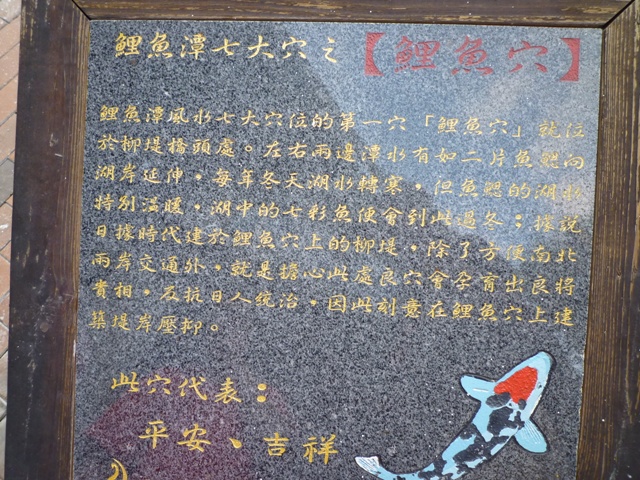 鯉魚潭七大穴之【鯉魚穴】
鯉魚潭風水七大穴位的第一穴「鯉魚穴」就位
於柳堤橋頭處。左右兩邊潭水有如二片魚鰓向
湖岸延伸，每年冬天湖水轉寒，但魚鰓的湖水
特別溫暖，湖中的七彩魚便會到此過冬；據說
日據時代建於鯉魚穴上的柳堤，除了方便南北
兩岸交通外，就是擔心此處良穴會孕育出良將
賢相，反抗日人統治，因此刻意在鯉魚穴上建
築堤岸壓抑。
此穴代表：
平安、吉祥